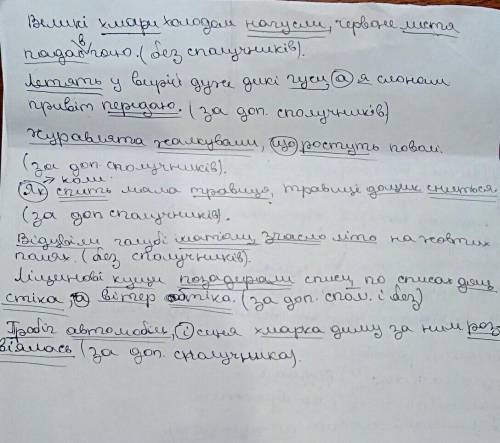 Великі хмари холодом напусми, червоне листя
падає в гаю. (без сполучників).
Летять у вирій дуже дикі гуси, а я слонам
привіт передаю. (за доп. сполучників)
Журавлята жалкували, що ростуть повалі.
(за доп сполучників).
коли
Як спить мала травиця, травиці дощик сниться.
(за доп сполучників).
Відцвіли голубі, згасло літо на жовтих
полях. (без сполучників).
Ліщинові кущі позадирали списи, по списах дощ
стіка, а вітер втіка. (за доп. спол. і без)
Пробіг автомобіль, і синя хмарка диму за ним роз
віялась (за доп. сполучника).